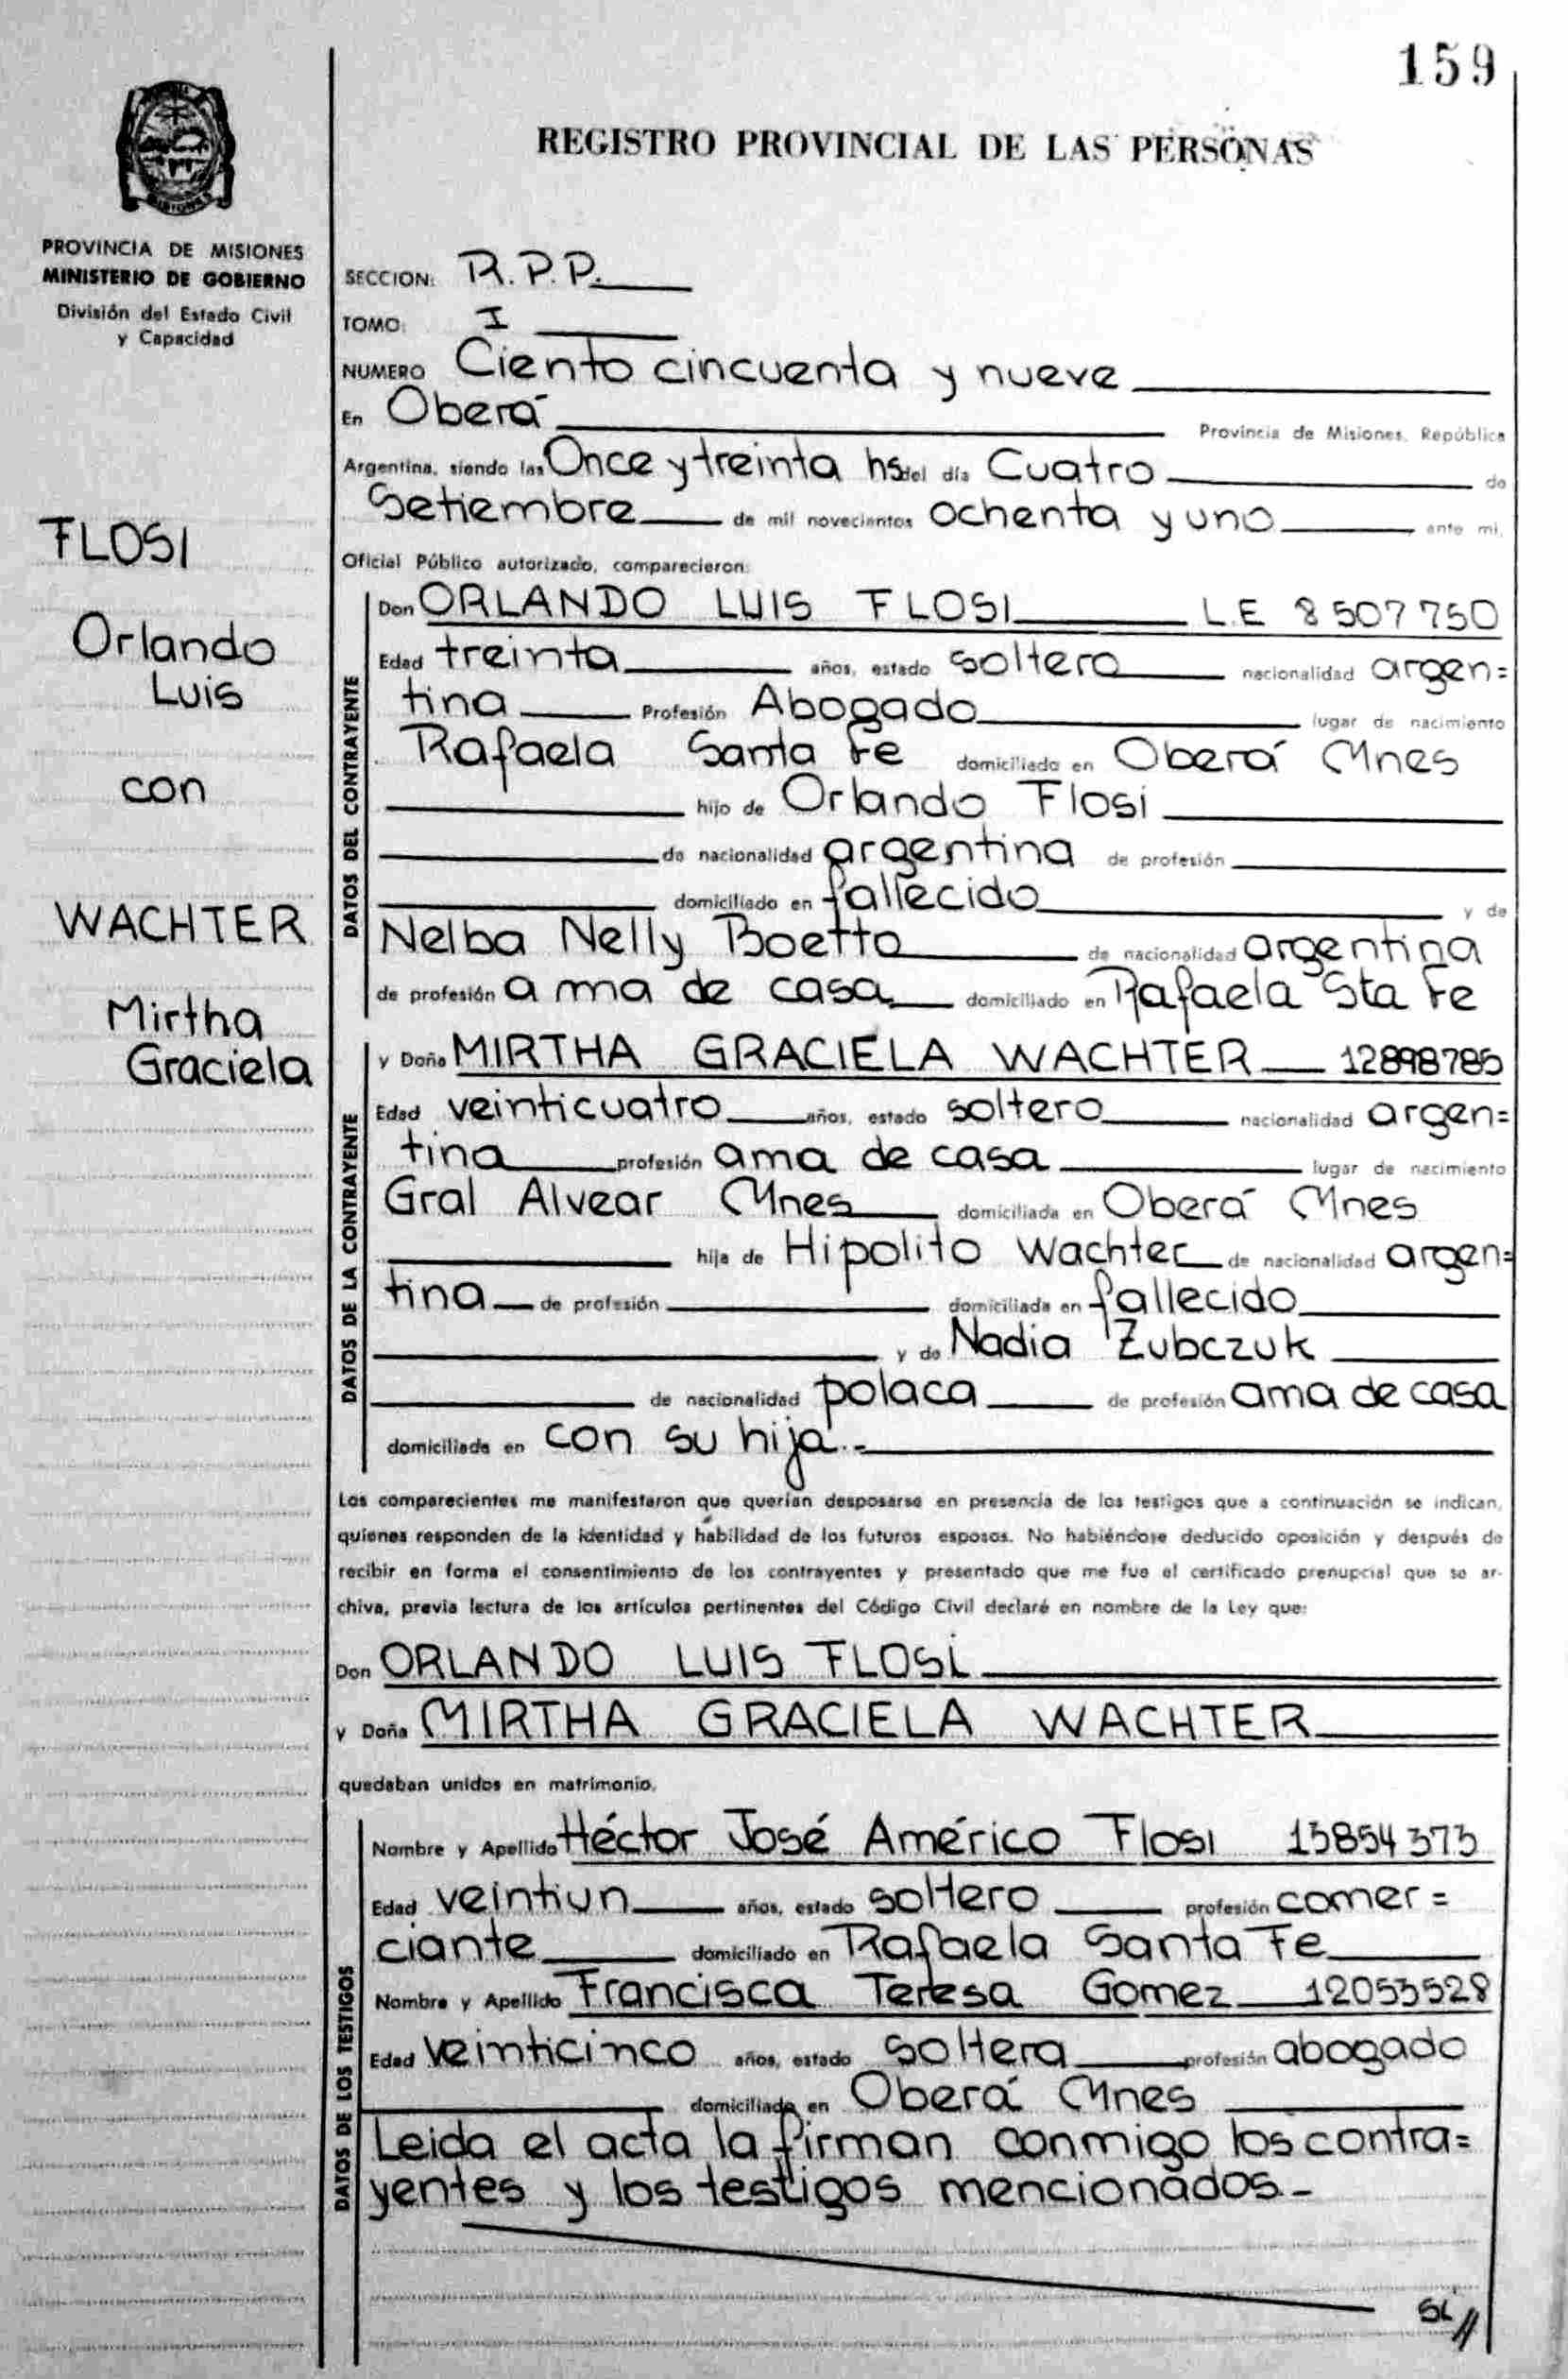 159
REGISTRO PROVINCIAL DE LAS PERSONAS
MISIONES
PROVINCIA DE MISIONES
MINISTERIO DE GOBIERNO
División del Estado Civil
y Capacidad
FLOSI
Orlando
Luis
con
WACHTER
Mirtha
Graciela
SECCION: R.P.P.
TOMO: I
NUMERO Ciento cincuenta y nueve
En Oberá Provincia de Misiones, República
Argentina, siendo las Once y treinta hs del día Cuatro de
Setiembre de mil novecientos ochenta y uno ante mi,
Oficial Público autorizado, comparecieron:
DATOS DEL CONTRAYENTE
Don ORLANDO LUIS FLOSI L.E 8507750
Edad treinta años, estado soltero nacionalidad argen=
tina Profesión Abogado lugar de nacimiento
Rafaela Santa Fe domiciliado en Oberá Mnes
hijo de Orlando Flosi
de nacionalidad argentina de profesión
domiciliado en fallecido y de
Nelba Nelly Boetto de nacionalidad argentina
de profesión ama de casa domiciliado en Rafaela Sta Fe
DATOS DE LA CONTRAYENTE
y Doña MIRTHA GRACIELA WACHTER 12898785
Edad veinticuatro años, estado soltero nacionalidad argen=
tina profesión ama de casa lugar de nacimiento
Gral Alvear Mnes domiciliada en Oberá Mnes
hija de Hipolito Wachter de nacionalidad argen=
tina de profesión domiciliada en fallecido
y de Nadia Zubczuk
de nacionalidad polaca de profesión ama de casa
domiciliada en con su hija.-
Los comparecientes me manifestaron que querían desposarse en presencia de los testigos que a continuación se indican,
quienes responden de la identidad y habilidad de los futuros esposos. No habiéndose deducido oposición y después de
recibir en forma el consentimiento de los contrayentes y presentado que me fue el certificado prenupcial que se ar-
chiva, previa lectura de los artículos pertinentes del Código Civil declaré en nombre de la Ley que:
Don ORLANDO LUIS FLOSI
y Doña MIRTHA GRACIELA WACHTER
quedaban unidos en matrimonio.
DATOS DE LOS TESTIGOS
Nombre y Apellido Héctor José Américo Flosi 13854373
Edad veintiun años, estado soltero profesión comer=
ciante domiciliado en Rafaela Santa Fe
Nombre y Apellido Francisca Teresa Gomez 12053528
Edad veinticinco años, estado soltera profesión abogado
domiciliada en Oberá Mnes
Leida el acta la firman conmigo los contra=
yentes y los testigos mencionados.-